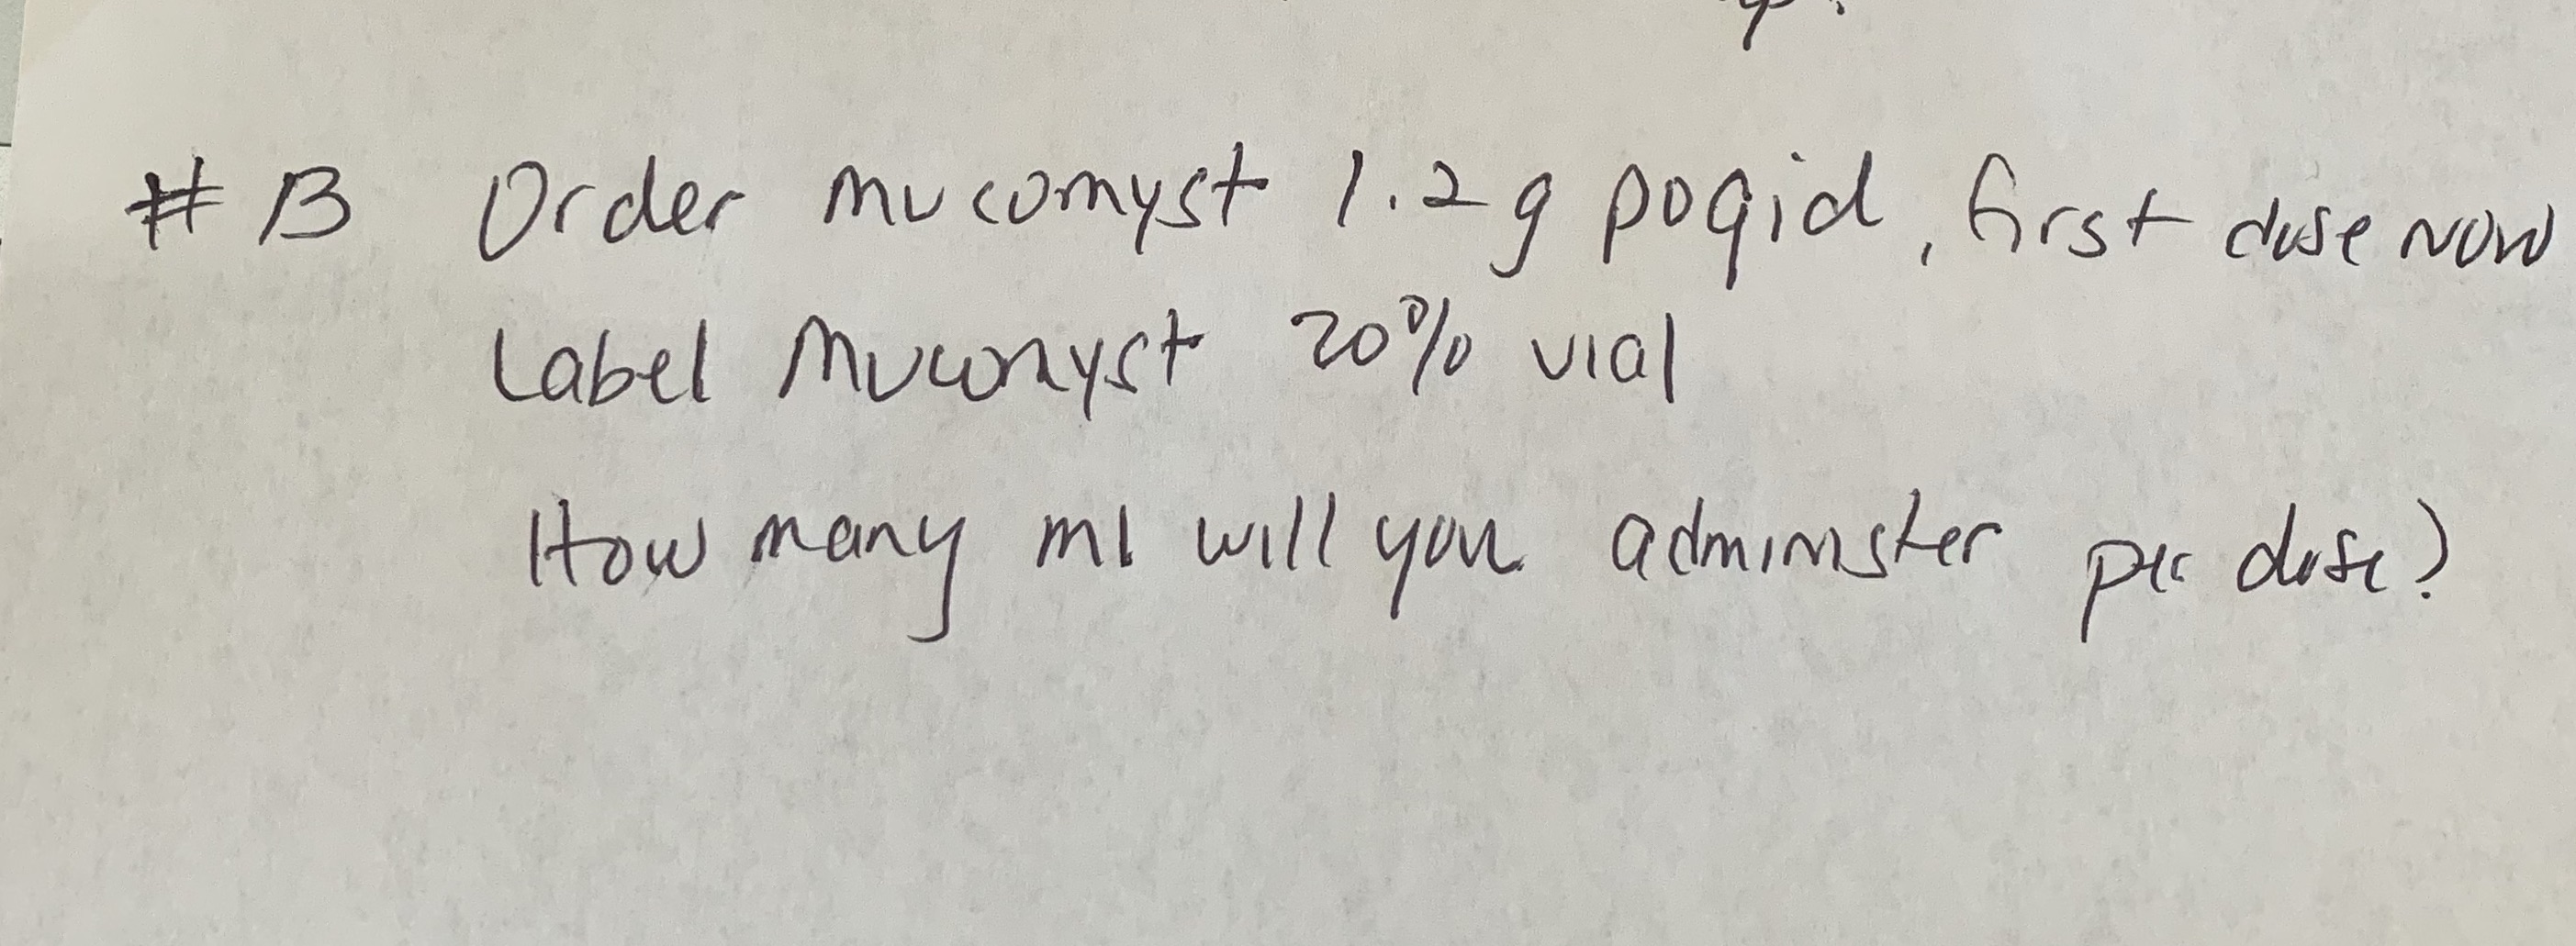 # B Order mucomyst 1.2g poqid, first dose now
Label Mucomyst 20% vial
How many ml will you administer per dose?